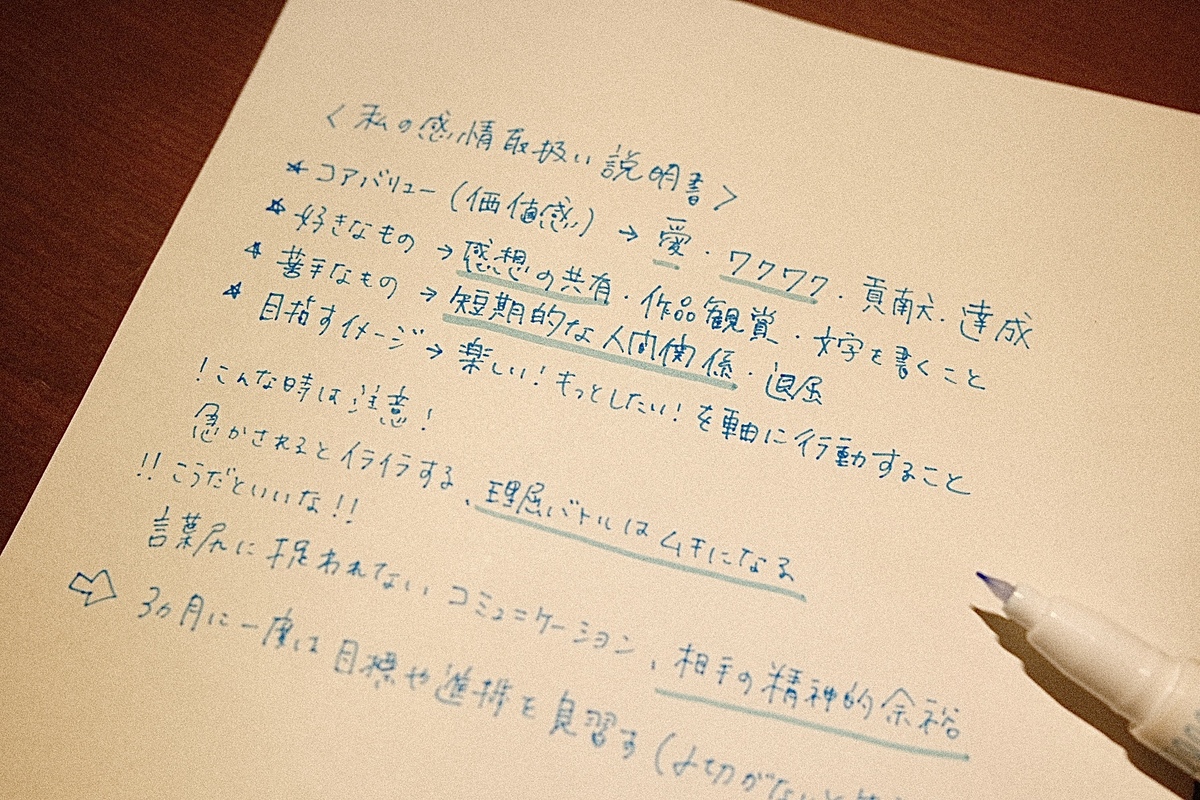 <私の感情取扱い説明書>
★コアバリュー(価値感)→愛・ワクワク・貢献・達成
★好きなもの→感想の共有・作品観賞・文字を書くこと
★苦手なもの→短期的な人間関係・退屈
★目指すイメージ→楽しい!もっとしたい!を軸に行動すること
!こんな時は注意!
急かされるとイライラする、理屈バトルはムキになる
!!こうだといいな!!
言葉尻に捉われないコミュニケーション、相手の精神的余裕
⇨3ヵ月に一度は目標や進捗を見習す(〆切がないと